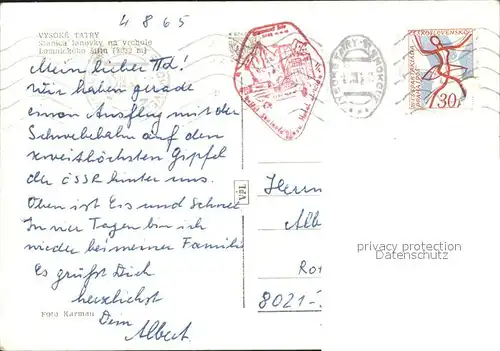 4 8 65
VYSOKÉ TATRY
Stanica lanovky na vrchole
Lomnického štítu (2632 m)
Mein lieber
Wir haben gerade
einen Ausflug mit der
Schwebebahn auf den
zweithöchsten Gipfel
der ČSSR hinter uns.
Oben ist Eis und Schnee
In vier Tagen bin ich
wieder bei meiner Familie
Es grüßt Dich
herzlichst
Dein
Albert
Foto Karman
VPL
ČESKOSLOVENSKO
30
Herrn
Alb
Ro
8021-
privacy protection
Datenschutz